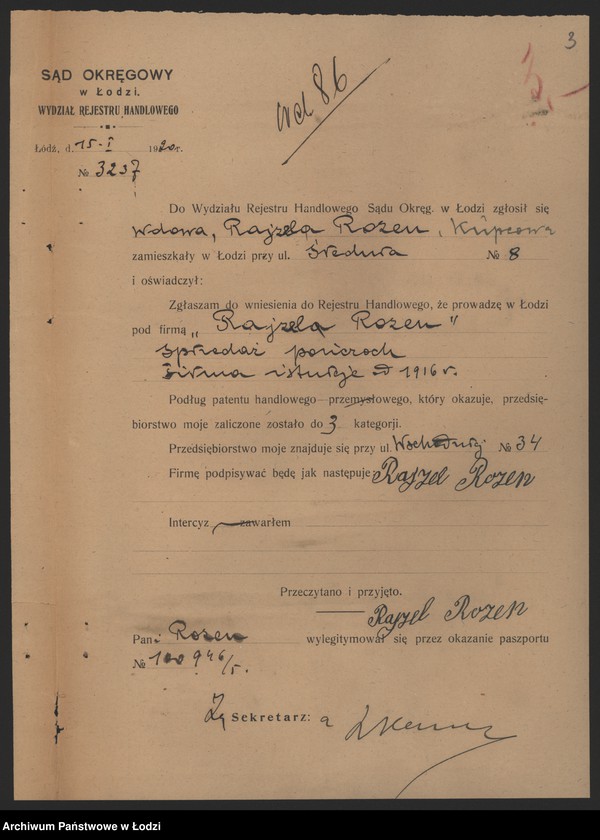 3
SĄD OKRĘGOWY
w Łodzi.
WYDZIAŁ REJESTRU HANDLOWEGO
Łódź, d. 15-I 1920 r.
№ 3237
wd 86
3,-
Do Wydziału Rejestru Handlowego Sądu Okręg. w Łodzi zgłosił się
wdowa, Rajzela Rozen, Kupcowa
zamieszkały w Łodzi przy ul. Średnia № 8
i oświadczył:
Zgłaszam do wniesienia do Rejestru Handlowego, że prowadzę w Łodzi
pod firmą „Rajzela Rozen"
sprzedaż pończoch
Firma istnieje od 1916 r.
Podług patentu handlowego-przemysłowego, który okazuje, przedsię-
biorstwo moje zaliczone zostało do 3 kategorji.
Przedsiębiorstwo moje znajduje się przy ul. Wschodniej № 34
Firmę podpisywać będę jak następuje: Rajzel Rozen
Intercyz zawarłem
Przeczytano i przyjęto.
Rajzel Rozen
Pani Rozen wylegitymował się przez okazanie paszportu
№ 100946/5.
Za Sekretarz: a
Archiwum Państwowe w Łodzi